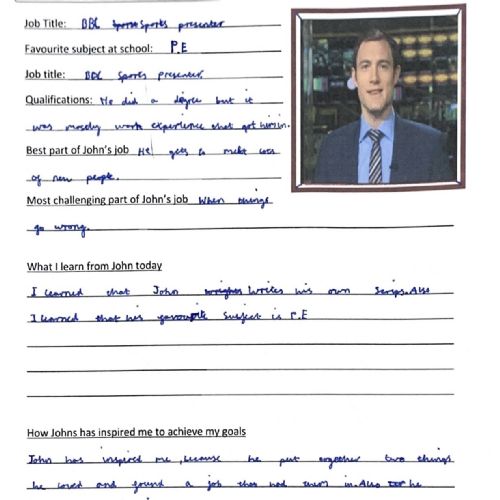 Job Title: BBC Sports presenter
Favourite subject at school: P.E
Job title: BBC Sports presenter.
Qualifications: He did a degree but it
was mostly work experience that got him in.
Best part of John's job He gets to meet lots
of new people.
Most challenging part of John's job When things
go wrong.
What I learn from John today
I learned that John writes his own scrips. Also
I learned that his favourite subject is P.E
How Johns has inspired me to achieve my goals
John has inspired me, because he put together two things
he loved and found a job that had them in. Also he